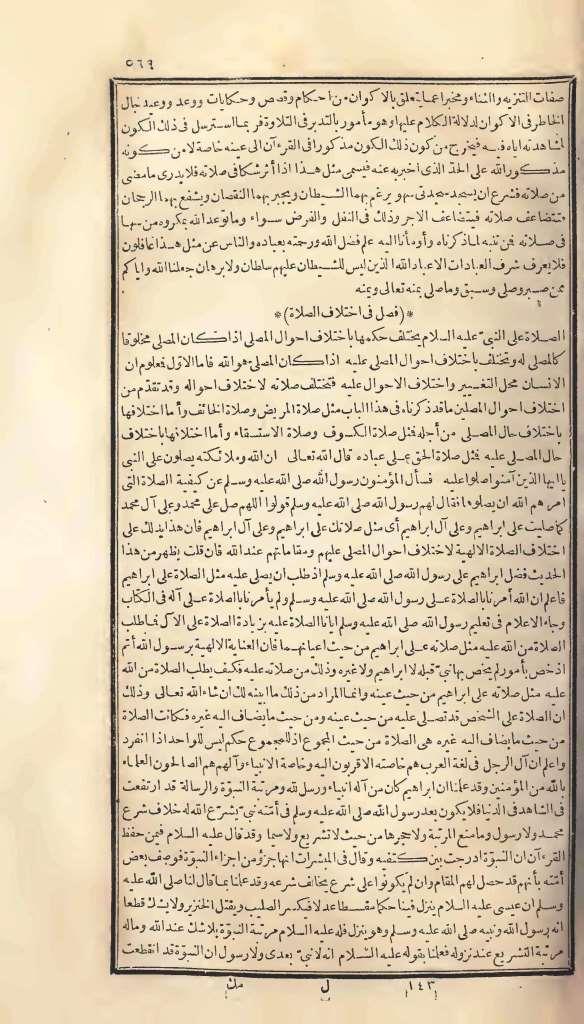 ٥٦٩
صفات التنزيه والثناء ومخبرا عما يتعلق بالاكوان من أحكام وقصص وحكايات ووعد ووعيد جال
الخاطر في الاكوان لدلالة الكلام عليها وهو مأمور بالتدبر في التلاوة فربما استرسل في ذلك الكون
لمشاهدته اياه فيه فيخرج من كون ذلك الكون مذكورا في القرآن الى عينه خاصة لا من كونه
مذكورا لله على الحد الذي أخبر به عنه فيسمى مثل هذا اذا أثر شكا في صلاته فلا يدرى ما مضى
من صلاته فشرع ان يسجد سجدتى سهو يرغم بهما الشيطان ويجبر بهما النقصان ويشفع بهما الرجحان
فتتضاعف صلاته فيتضاعف الاجر وذلك في النفل والفرض سواء وما توعد الله بمكروه من سها
في صلاته فمن تنبه لما ذكرناه وأومأنا اليه علم فضل الله ورحمته بعباده والناس عن مثل هذا غافلون
فلا يعرف شرف العبادات الا عباد الله الذين ليس للشيطان عليهم سلطان ولا برهان جعلنا الله واياكم
ممن صبر وصلى وسبق وما صلى بمنه تعالى ويمنه
*(فصل في اختلاف الصلاة)*
الصلاة على النبى عليه السلام يختلف حكمها باختلاف احوال المصلى اذا كان المصلى مخلوقا
كالمصلى له وتختلف باختلاف احوال المصلى عليه اذا كان المصلى هو الله فاما الاول فمعلوم ان
الانسان محل التغيير واختلاف الاحوال عليه فتختلف صلاته لاختلاف احواله وقد تقدم من
اختلاف احوال المصلين ما قد ذكرناه في هذا الباب مثل صلاة المريض وصلاة الخائف وأما اختلافها
باختلاف حال المصلى من أجله فمثل صلاة الكسوف وصلاة الاستسقاء وأما اختلافها باختلاف
حال المصلى عليه فمثل صلاة الحق على عباده قال الله تعالى ان الله وملائكته يصلون على النبى
يا ايها الذين آمنوا صلوا عليه فسأل المؤمنون رسول الله صلى الله عليه وسلم عن كيفية الصلاة التى
امرهم الله ان يصلوها فقال لهم رسول الله صلى الله عليه وسلم قولوا اللهم صل على محمد وعلى آل محمد
كما صليت على ابراهيم وعلى آل ابراهيم أى مثل صلاتك على ابراهيم وعلى آل ابراهيم فان هذا يدلك على
اختلاف الصلاة الالهية لاختلاف احوال المصلى عليهم ومقاماتهم عند الله فان قلت يظهر من هذا
الحديث فضل ابراهيم على رسول الله صلى الله عليه وسلم اذ طلب ان يصلى عليه مثل الصلاة على ابراهيم
فاعلم ان الله أمرنا بالصلاة على رسول الله صلى الله عليه وسلم ولم يأمرنا بالصلاة على آله في الكتاب
وجاء الاعلام في تعليم رسول الله صلى الله عليه وسلم ايانا الصلاة عليه بزيادة الصلاة على الآل فما طلب
الصلاة من الله عليه مثل صلاته على ابراهيم من حيث اعيانهما فان العناية الالهية برسول الله أتم
اذ خص بأمور لم يخص بها نبى قبله لا ابراهيم ولا غيره وذلك من صلاته عليه فكيف يطلب الصلاة من الله
عليه مثل صلاته على ابراهيم من حيث عينه وانما المراد من ذلك ما ابينه لك ان شاء الله تعالى وذلك
ان الصلاة على الشخص قد تصلى عليه من حيث عينه ومن حيث ما يضاف اليه غيره فكانت الصلاة
من حيث ما يضاف اليه غيره هى الصلاة من حيث المجموع اذ للمجموع حكم ليس للواحد اذا انفرد
واعلم ان آل الرجل في لغة العرب هم خاصته الاقربون اليه وخاصة الانبياء وآلهم هم الصالحون العلماء
بالله من المؤمنين وقد علمنا ان ابراهيم كان من آله انبياء ورسل لله ومرتبة النبوة والرسالة قد ارتفعت
في الشاهد في الدنيا فلا يكون بعد رسول الله صلى الله عليه وسلم في أمته نبى يشرع الله له خلاف شرع
محمد ولا رسول وما منع المرتبة ولا حجرها من حيث لا تشريع ولا سيما وقد قال عليه السلام فيمن حفظ
القرآن ان النبوة ادرجت بين كتفيه وقال في المبشرات انها جزؤ من اجزاء النبوة فوصف بعض
أمته بأنهم قد حصل لهم المقام وان لم يكونوا على شرع يخالف شرعه وقد علمنا بما قال لنا صلى الله عليه
وسلم ان عيسى عليه السلام ينزل فينا حكما مقسطا عدلا فيكسر الصليب ويقتل الخنزير ولا يشك قطعا
انه رسول الله ونبيه صلى الله عليه وسلم وهو ينزل فله عليه السلام مرتبة النبوة بلا شك عند الله وماله
مرتبة التشريع عند نزوله فعلمنا بقوله عليه السلام انه لا نبى بعدى ولا رسول ان النبوة قد انقطعت
١٤٣ ل مك